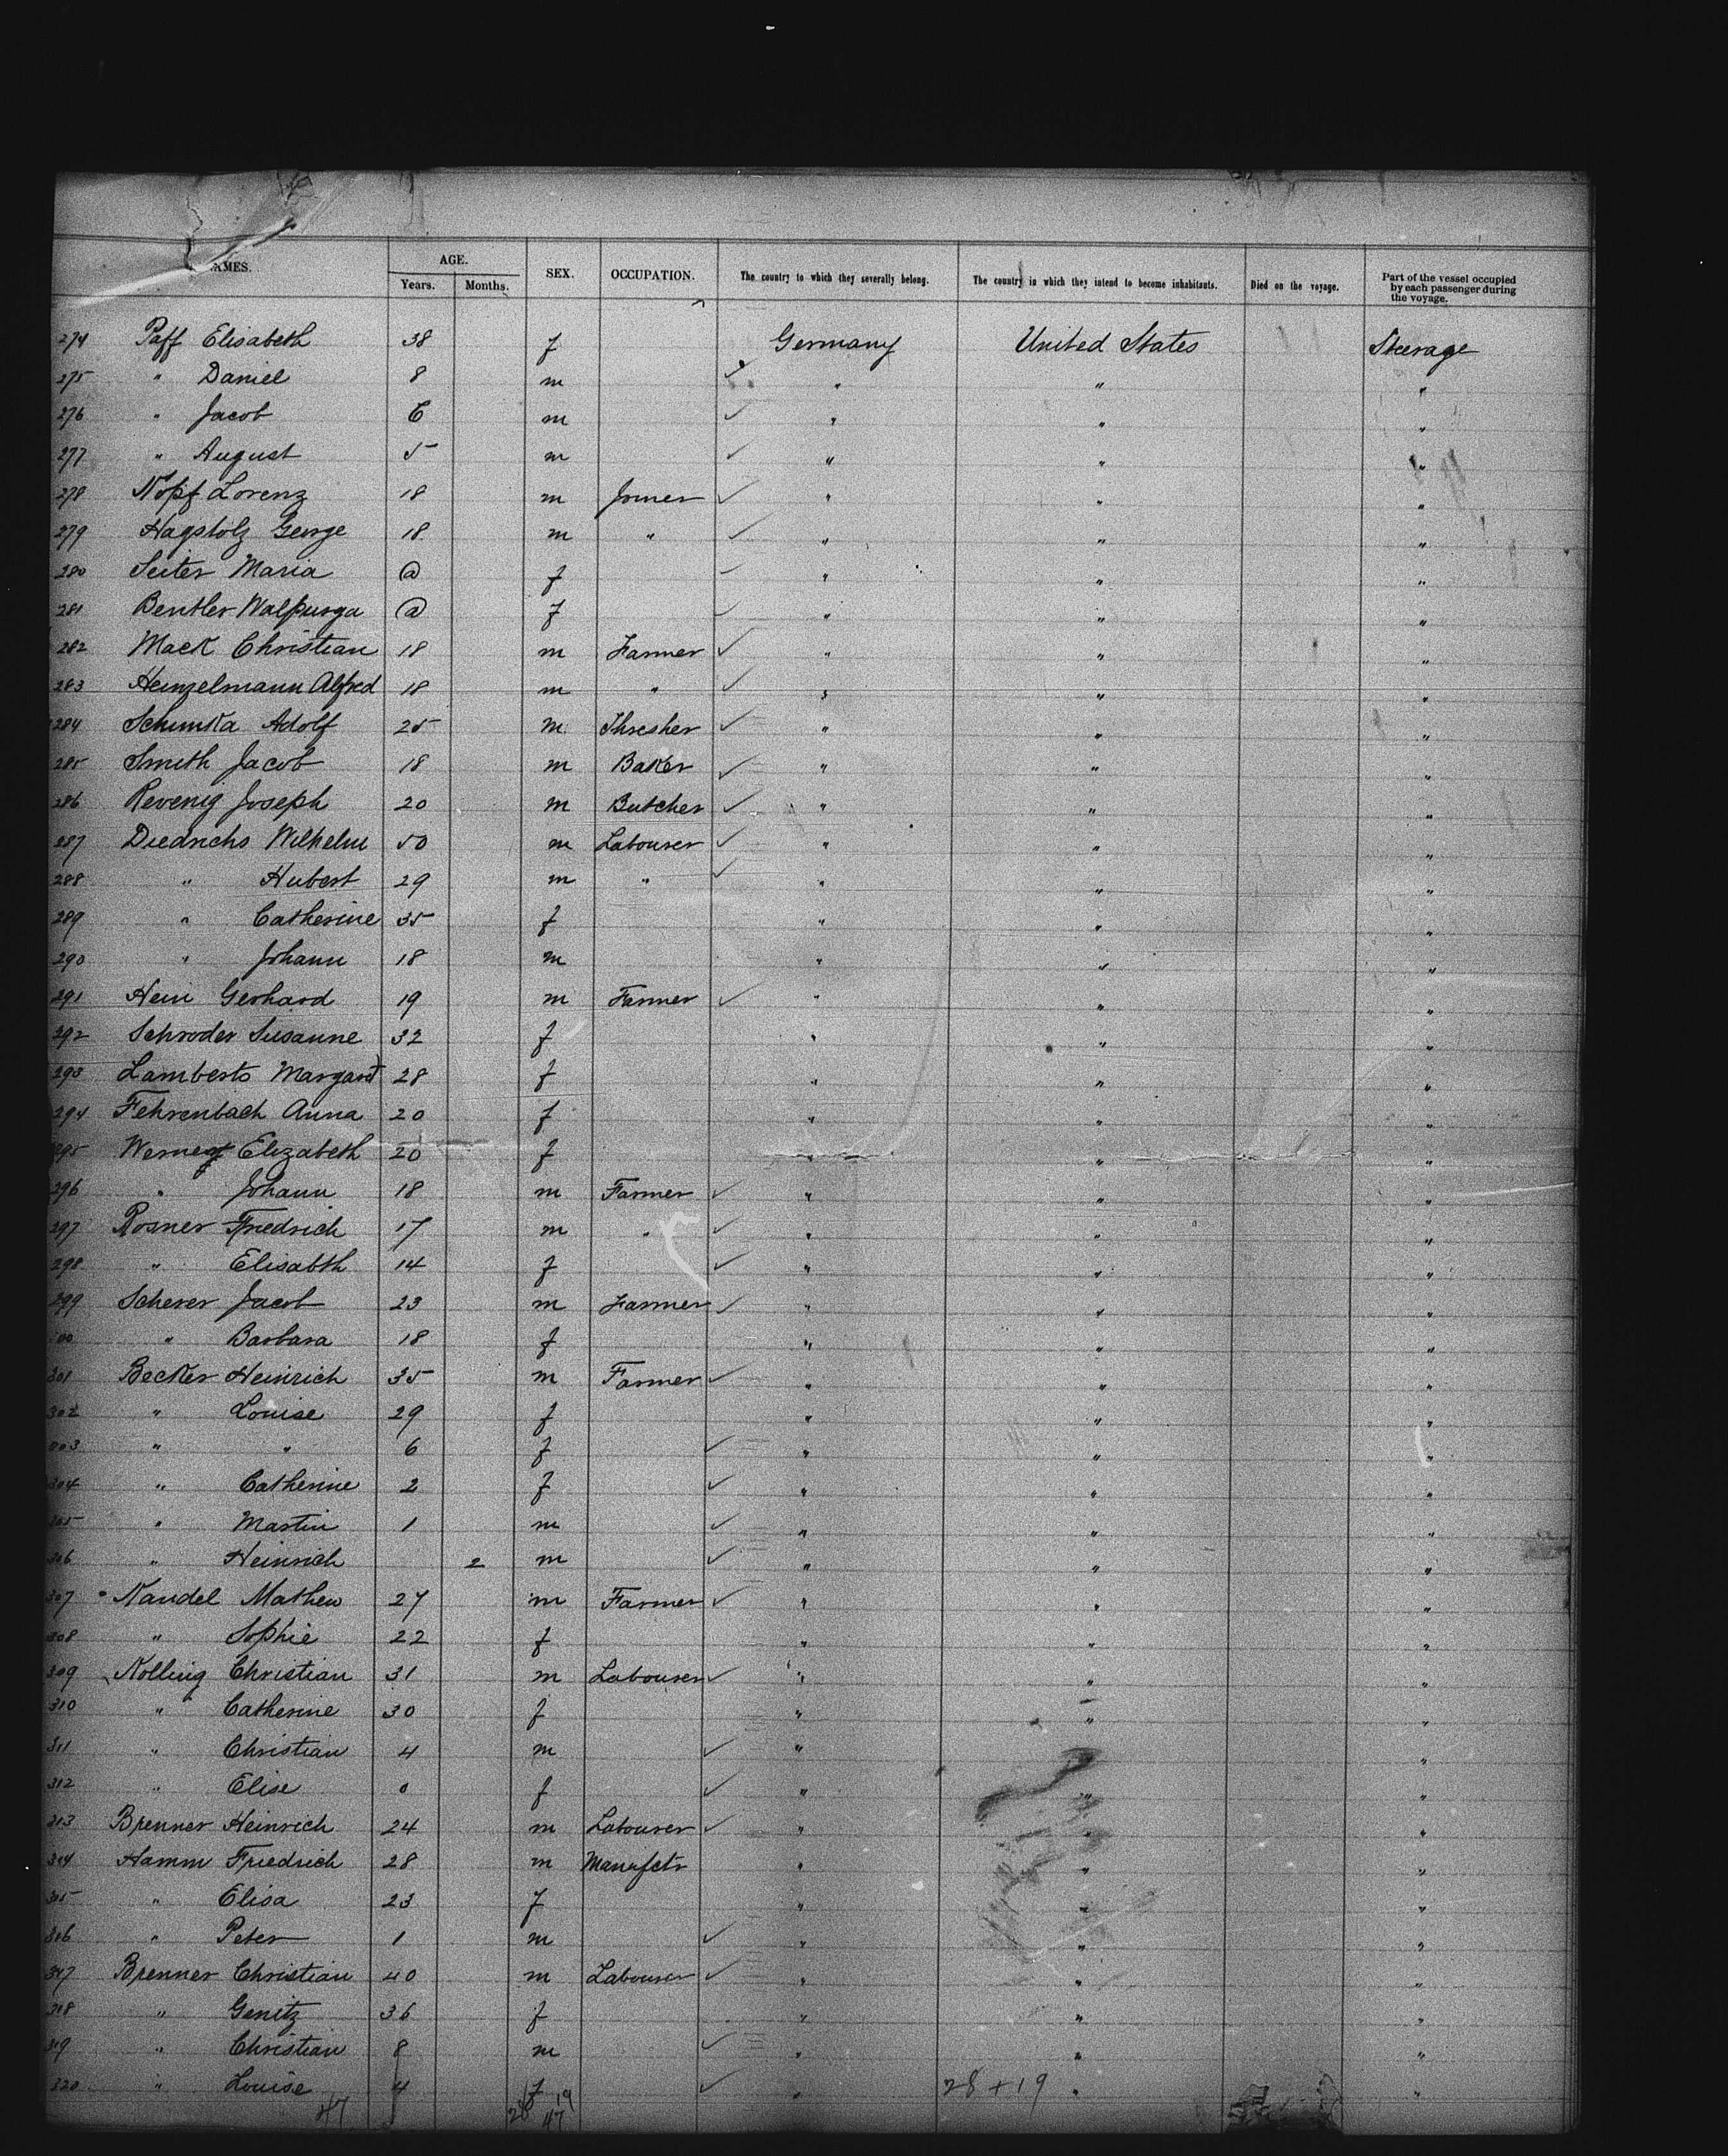 AMES. AGE. SEX. OCCUPATION. The country to which they severally belong. The country in which they intend to become inhabitants. Died on the voyage. Part of the vessel occupied by each passenger during the voyage.
Years. Months.
274 Paff Elisabeth 38 f Germany United States Steerage
275 " Daniel 8 m " " "
276 " Jacob 6 m " " "
277 " August 5 m " " "
278 Kopf Lorenz 18 m Joiner " " "
279 Hagstolz George 18 m " " " "
280 Seiter Maria @ f " " "
281 Bentler Walpurga @ f " " "
282 Mack Christian 18 m Farmer " " "
283 Heinzelmann Alfred 18 m " " " "
284 Schimka Adolf 25 m Thresher " " "
285 Smith Jacob 18 m Baker " " "
286 Revenig Joseph 20 m Butcher " " "
287 Diedrichs Wilhelm 50 m Labourer " " "
288 " Hubert 29 m " " " "
289 " Catherine 35 f " " "
290 " Johann 18 m " " "
291 Hein Gerhard 19 m Farmer " " "
292 Schroder Susanne 32 f " " "
293 Lamberts Margaret 28 f " " "
294 Fehrenbach Anna 20 f " " "
295 Elizabeth 20 f " " "
296 " Johann 18 m Farmer " " "
297 Rosner Friedrich 17 m " " " "
298 " Elisabth 14 f " " "
299 Scherer Jacob 23 m Farmer " " "
300 " Barbara 18 f " " "
301 Becker Heinrich 35 m Farmer " " "
302 " Louise 29 f " " "
303 " " 6 f " " "
304 " Catherine 2 f " " "
305 " Martin 1 m " " "
306 " Heinrich 2 m " " "
307 Kandel Mathew 27 m Farmer " " "
308 " Sophie 22 f " " "
309 Kolling Christian 31 m Labourer " " "
310 " Catherine 30 f " " "
311 " Christian 4 m " " "
312 " Elise 0 f " " "
313 Brenner Heinrich 24 m Labourer " " "
314 Hamm Friedrich 28 m Manufctr " " "
315 " Elisa 23 f " " "
316 " Peter 1 m " " "
317 Brenner Christian 40 m Labourer " " "
318 " Genitz 36 f " " "
319 " Christian 8 m " " "
320 " Louise 4 f " 28+19 " "
47 28 19
47